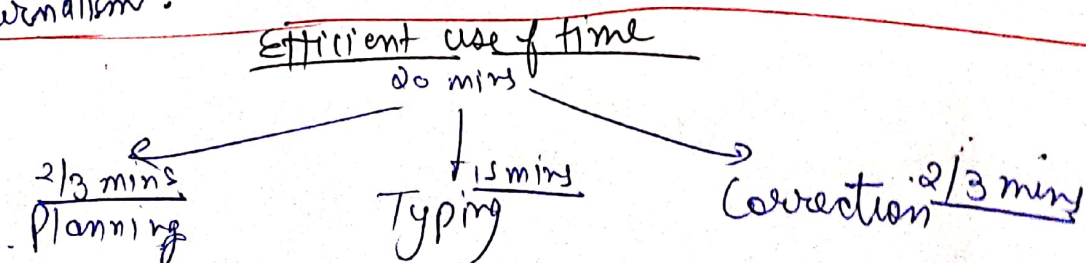 Efficient use of time
20 mins
2/3 mins
Planning
15 mins
Typing
Correction 2/3 mins